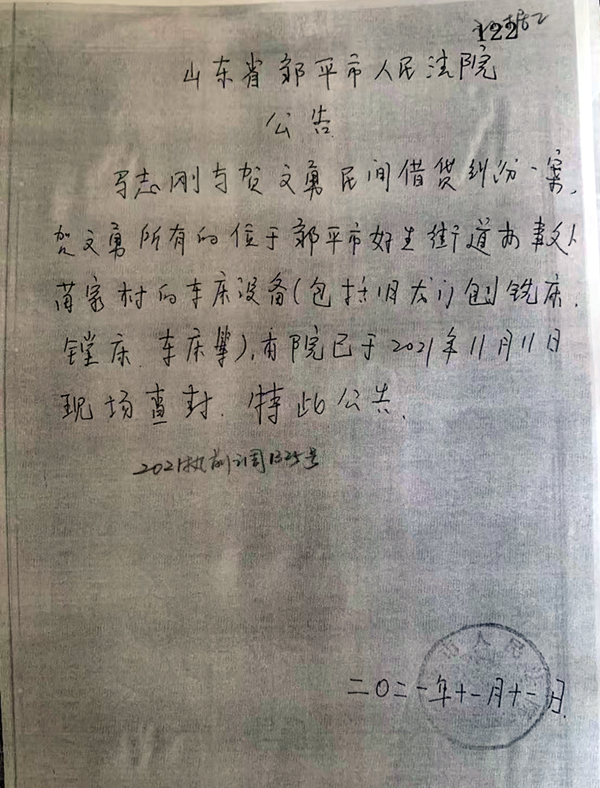 122
山东省邹平市人民法院
公告
马志刚与贺文勇民间借贷纠纷一案,
贺文勇所有的位于邹平市好生街道办事处
苗家村的车床设备(包括旧龙门刨铣床.
镗床.车床等),本院已于2021年11月11日
现场查封.特此公告.
2021执前调1325号
市人民
二〇二一年十一月十一日.